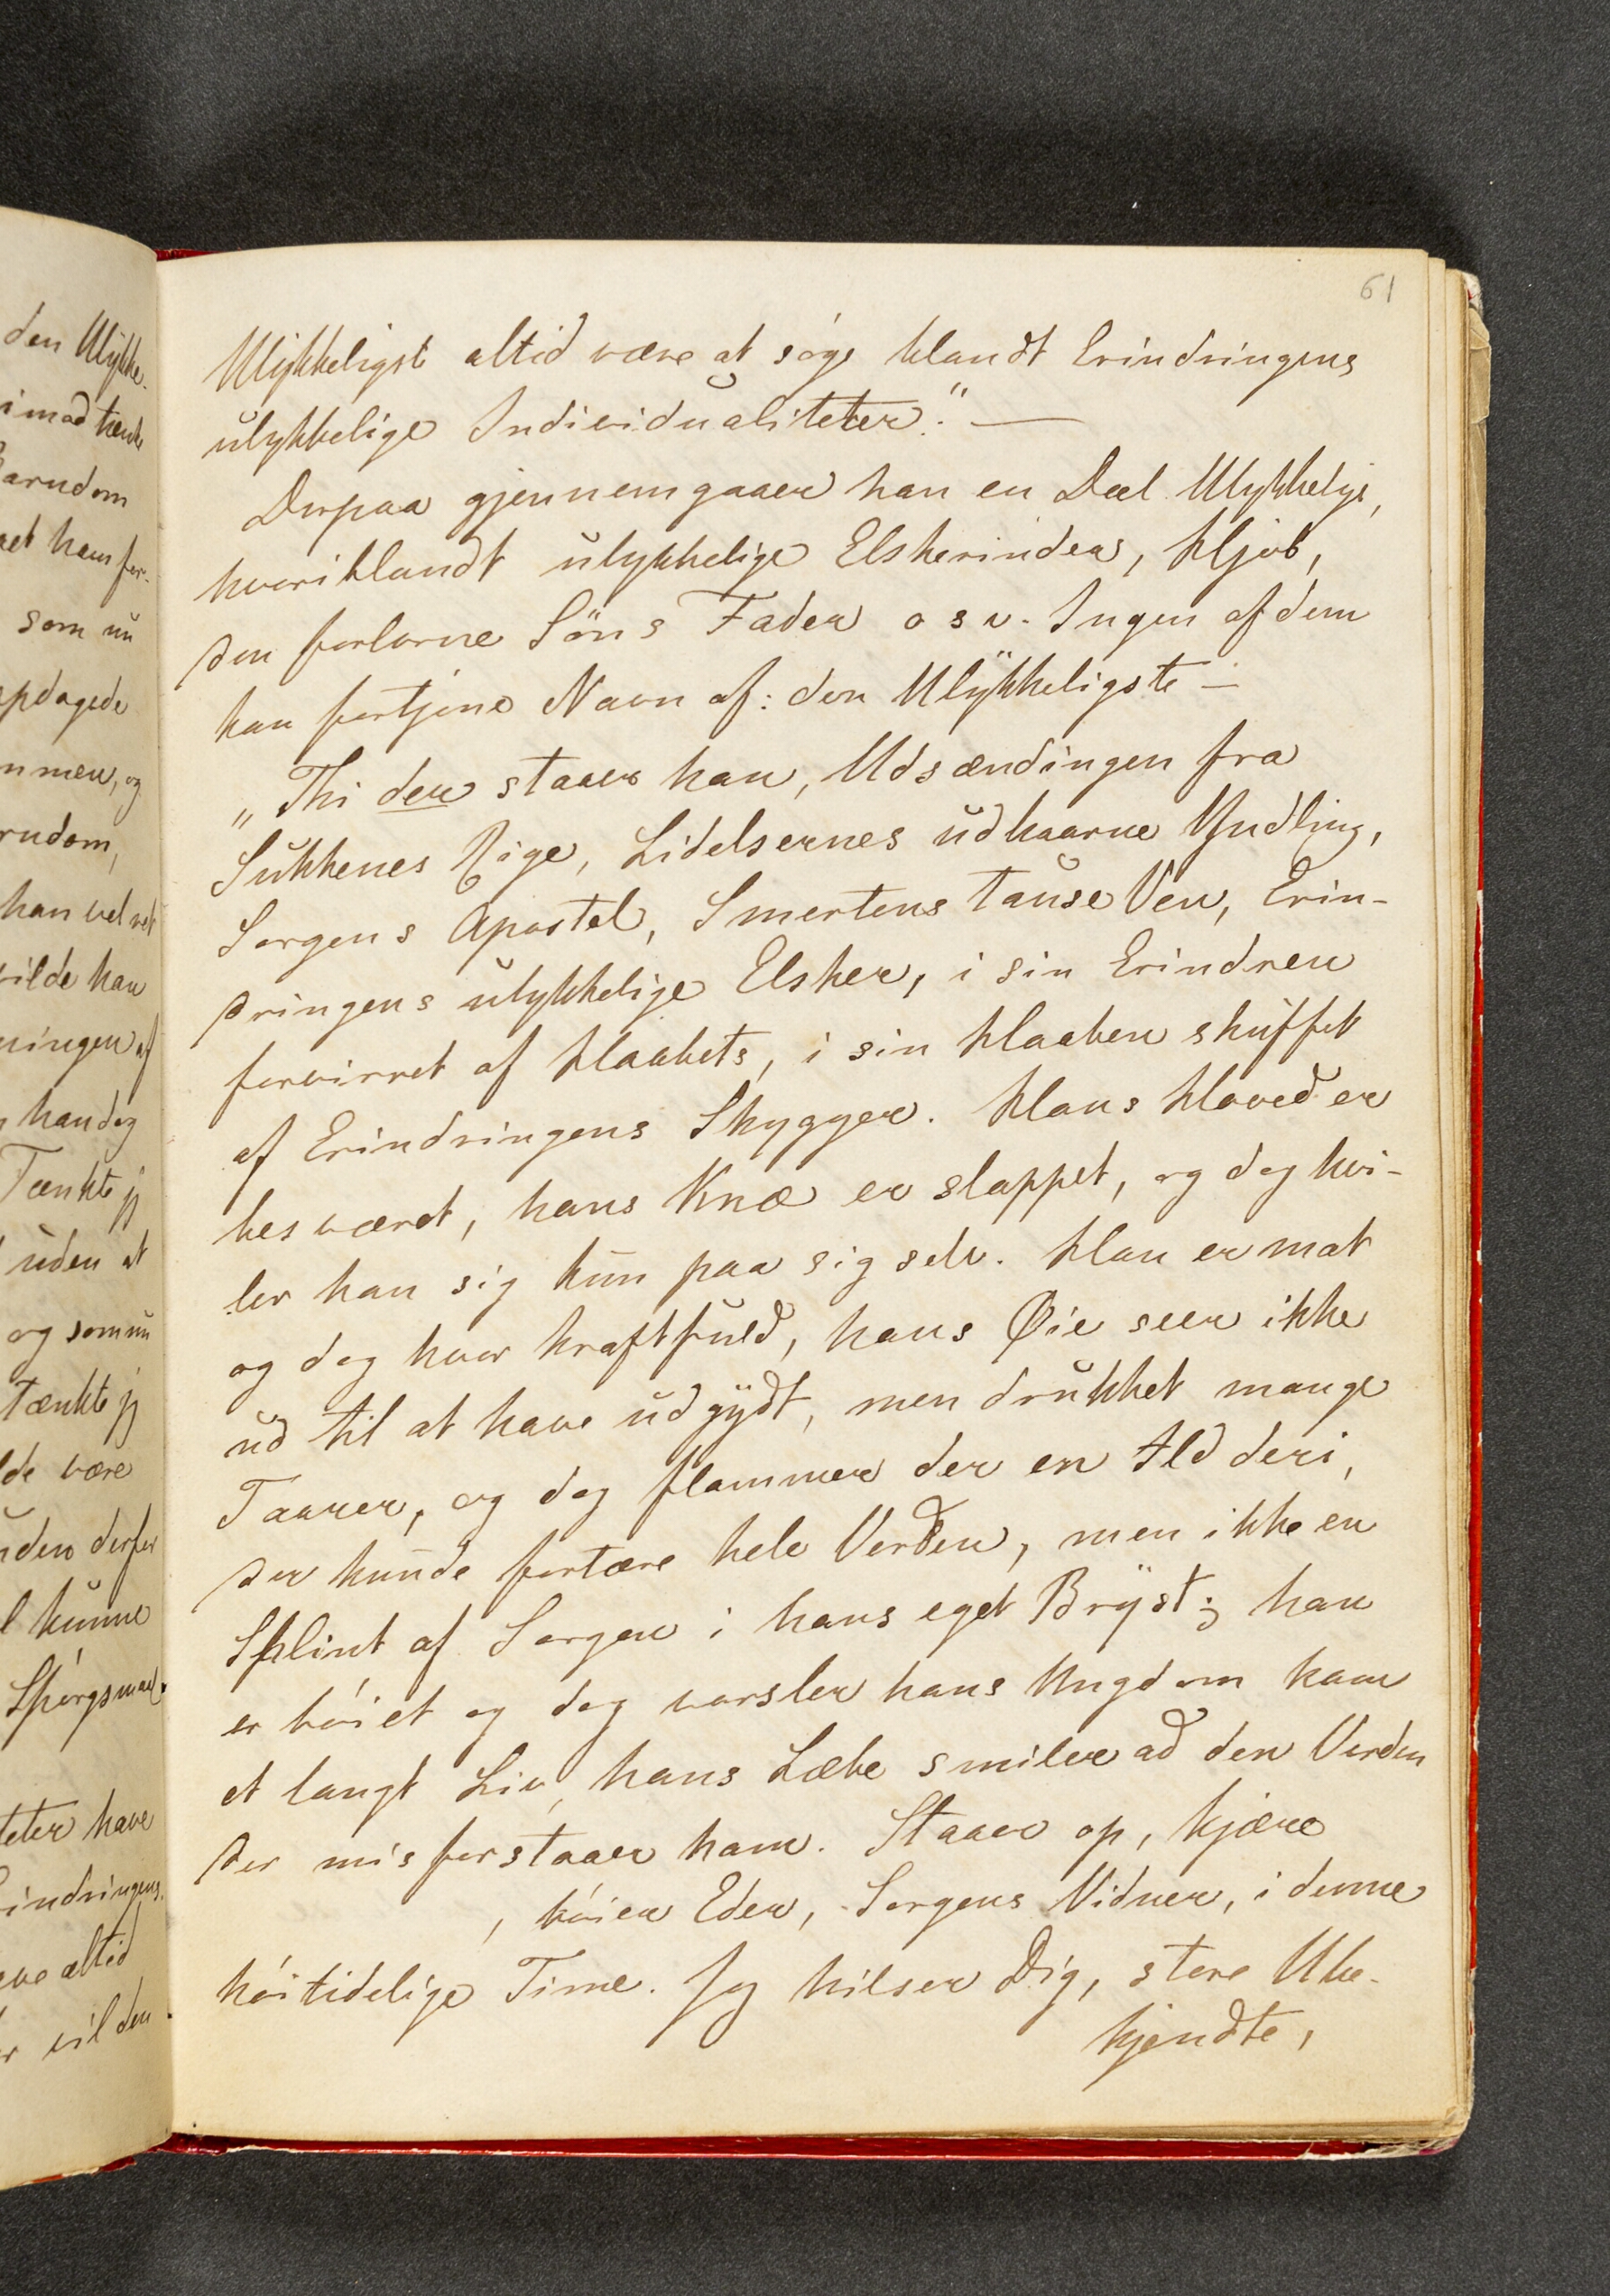 61
Ulykkeligste altid være at söge blandt Erindringens
ulykkelige Individualiteter." —
Derpaa gjennemgaaer han en Deel Ulykkelige,
hvoriblandt ulykkelige Elskerinder, Hjob,
den forlorne Söns Fader o s v. Ingen af dem
kan fortjene Navn af: den Ulykkeligste —
„Thi der staaer han, Udsændingen fra
Sukkenes Rige, Lidelsernes udkaarne Yndling,
Sorgens Apostel, Smertens tause Ven, Erin-
dringens ulykkelige Elsker, i sin Erindren
forvirret af Haabets, i sin Haaben skuffet
af Erindringens Skygger. Hans Hoved er
besværet, hans Knæ er slappet, og dog hvi-
ler han sig kun paa sig selv. Han er mat
og dog hvor kraftfuld, hans Øie seer ikke
ud til at have udgydt, men drukket mange
Taarer, og dog flammer der en Ild deri,
der kunde fortære hele Verden, men ikke en
Splint af Sorgen i hans eget Bryst; han
er böiet og dog varsler hans Ungdom ham
et langt Liv, hans Læbe smiler ad den Verden
der misforstaaer ham. Staaer op, kjære
, böier Eder, Sorgens Vidner, i denne
höitidelige Time. Jeg hilser Dig, store Ube-
kjendte,
den Ulykke-
imod tænke
arndom
et ham for-
som nu
pdagede
nmen, og
rndom,
han vel ret
vilde han
ningen af
han dog
Tænkte jeg
uden at
og som nu
tænkte jeg
lde være
uden derfor
l kunne
Spörgsmaal.
teter have
indringens
altid
vil den